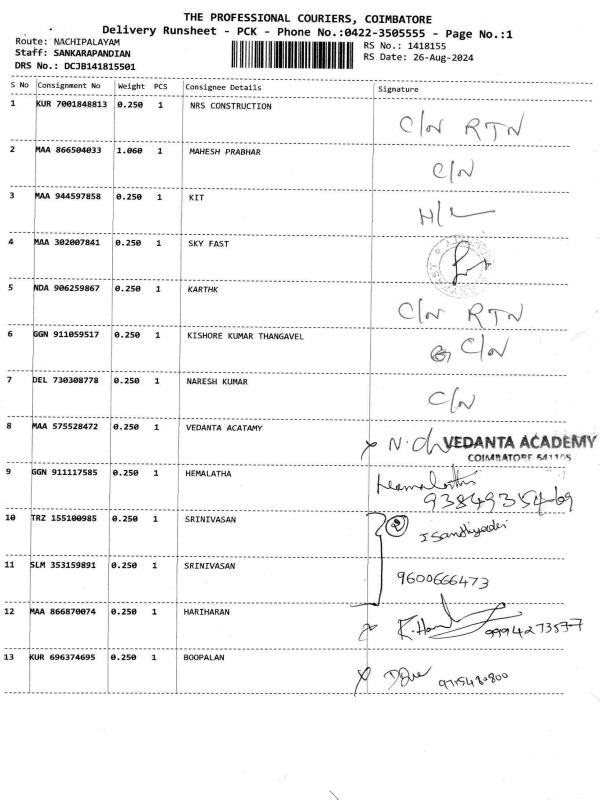 THE PROFESSIONAL COURIERS, COIMBATORE
Delivery Runsheet - PCK - Phone No.:0422-3505555 - Page No.:1
Route: NACHIPALAYAM
Staff: SANKARAPANDIAN
DRS No.: DCJB141815501
RS No.: 1418155
RS Date: 26-Aug-2024
S No Consignment No Weight PCS Consignee Details Signature
1 KUR 7001848813 0.250 1 NRS CONSTRUCTION C/N RTN
2 MAA 866504033 1.060 1 MAHESH PRABHAR C/N
3 MAA 944597858 0.250 1 KIT
4 MAA 302007841 0.250 1 SKY FAST
5 NDA 906259867 0.250 1 KARTHK C/N RTN
6 GGN 911059517 0.250 1 KISHORE KUMAR THANGAVEL C/N
7 DEL 730308778 0.250 1 NARESH KUMAR C/N
8 MAA 575528472 0.250 1 VEDANTA ACATAMY VEDANTA ACADEMY
COIMBATORE 641105
9 GGN 911117585 0.250 1 HEMALATHA Hemalatha
9384935469
10 TRZ 155100985 0.250 1 SRINIVASAN 2
11 SLM 353159891 0.250 1 SRINIVASAN 9600666473
12 MAA 866870074 0.250 1 HARIHARAN
13 KUR 696374695 0.250 1 BOOPALAN